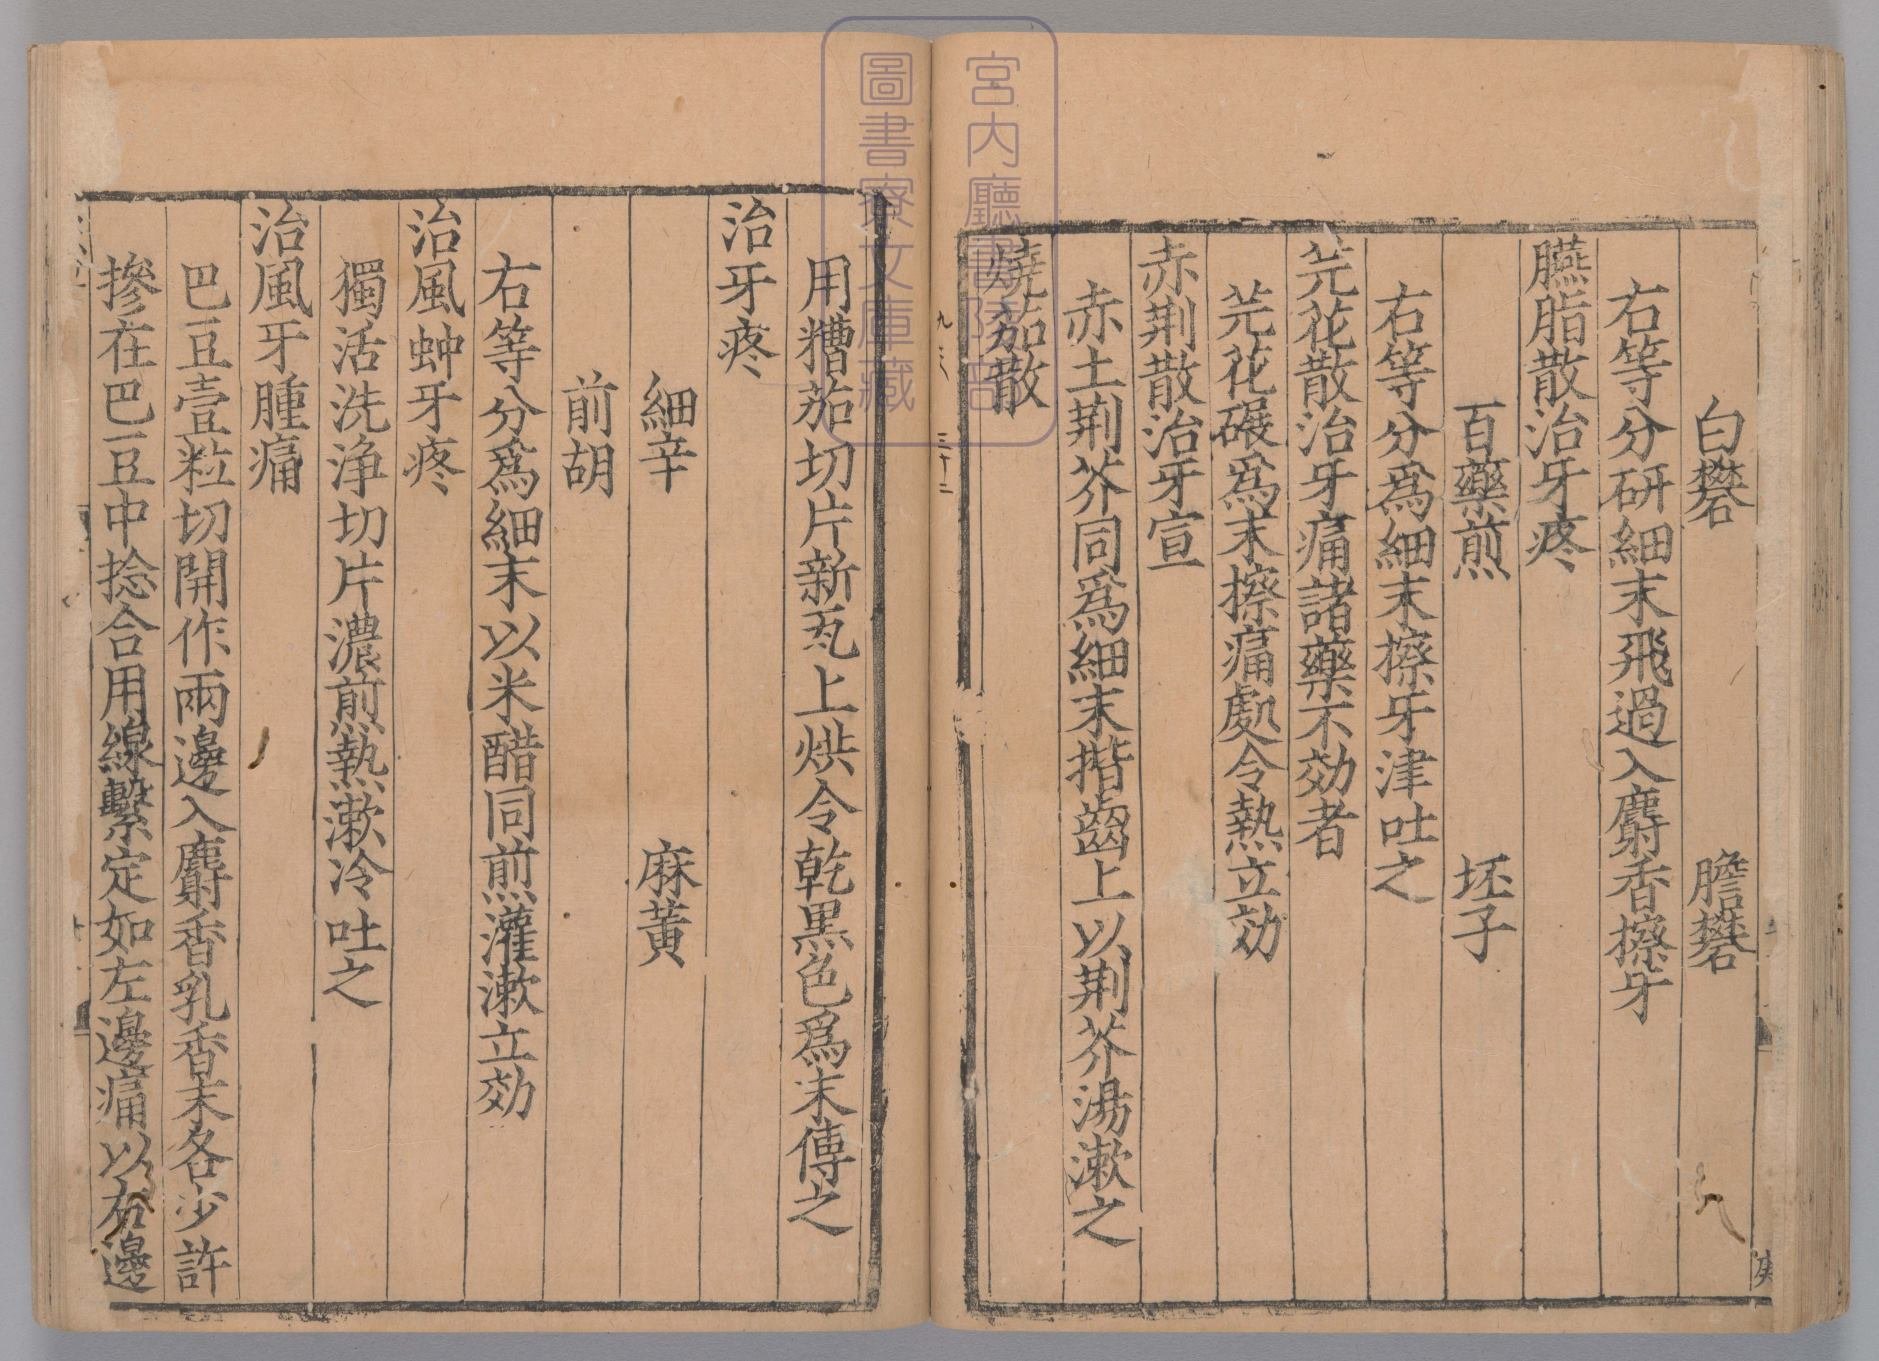 白礬　膽礬
右等分研細末飛過入麝香擦牙
臙脂散治牙疼
百藥煎　坯子
右等分爲細末擦牙津吐之
芫花散治牙痛諸藥不効者
芫花碾爲末擦痛處令熱立効
赤荆散治牙宣
赤土荆芥同爲細末揩齒上以荆芥湯漱之
燒茄散
九
三十二
用糟茄切片新瓦上烘令乾黒色爲末傅之
治牙疼
細辛　麻黄
前胡
右等分爲細末以米醋同煎灌漱立効
治風蚛牙疼
獨活洗浄切片濃煎熱漱冷吐之
治風牙腫痛
巴豆壹粒切開作兩邊入麝香乳香末各少許
摻在巴豆中捻合用線繫定如左邊痛以右邊
宮内廳書陵部
圖書寮文庫藏